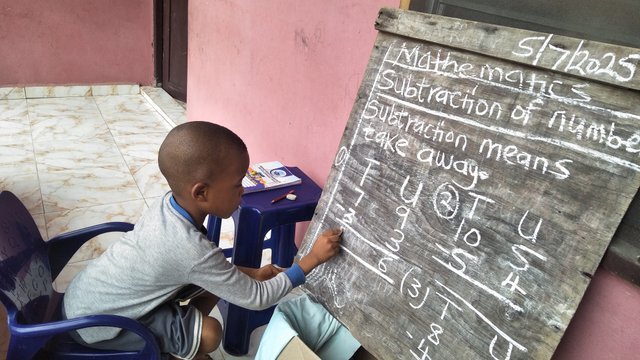 5/7/2025
Mathematics
Subtraction of numbe
Subtraction means
take away.
① T U ② T U
7 9 10 5
-2 3 -5 4
6
(3) T U
8
-4